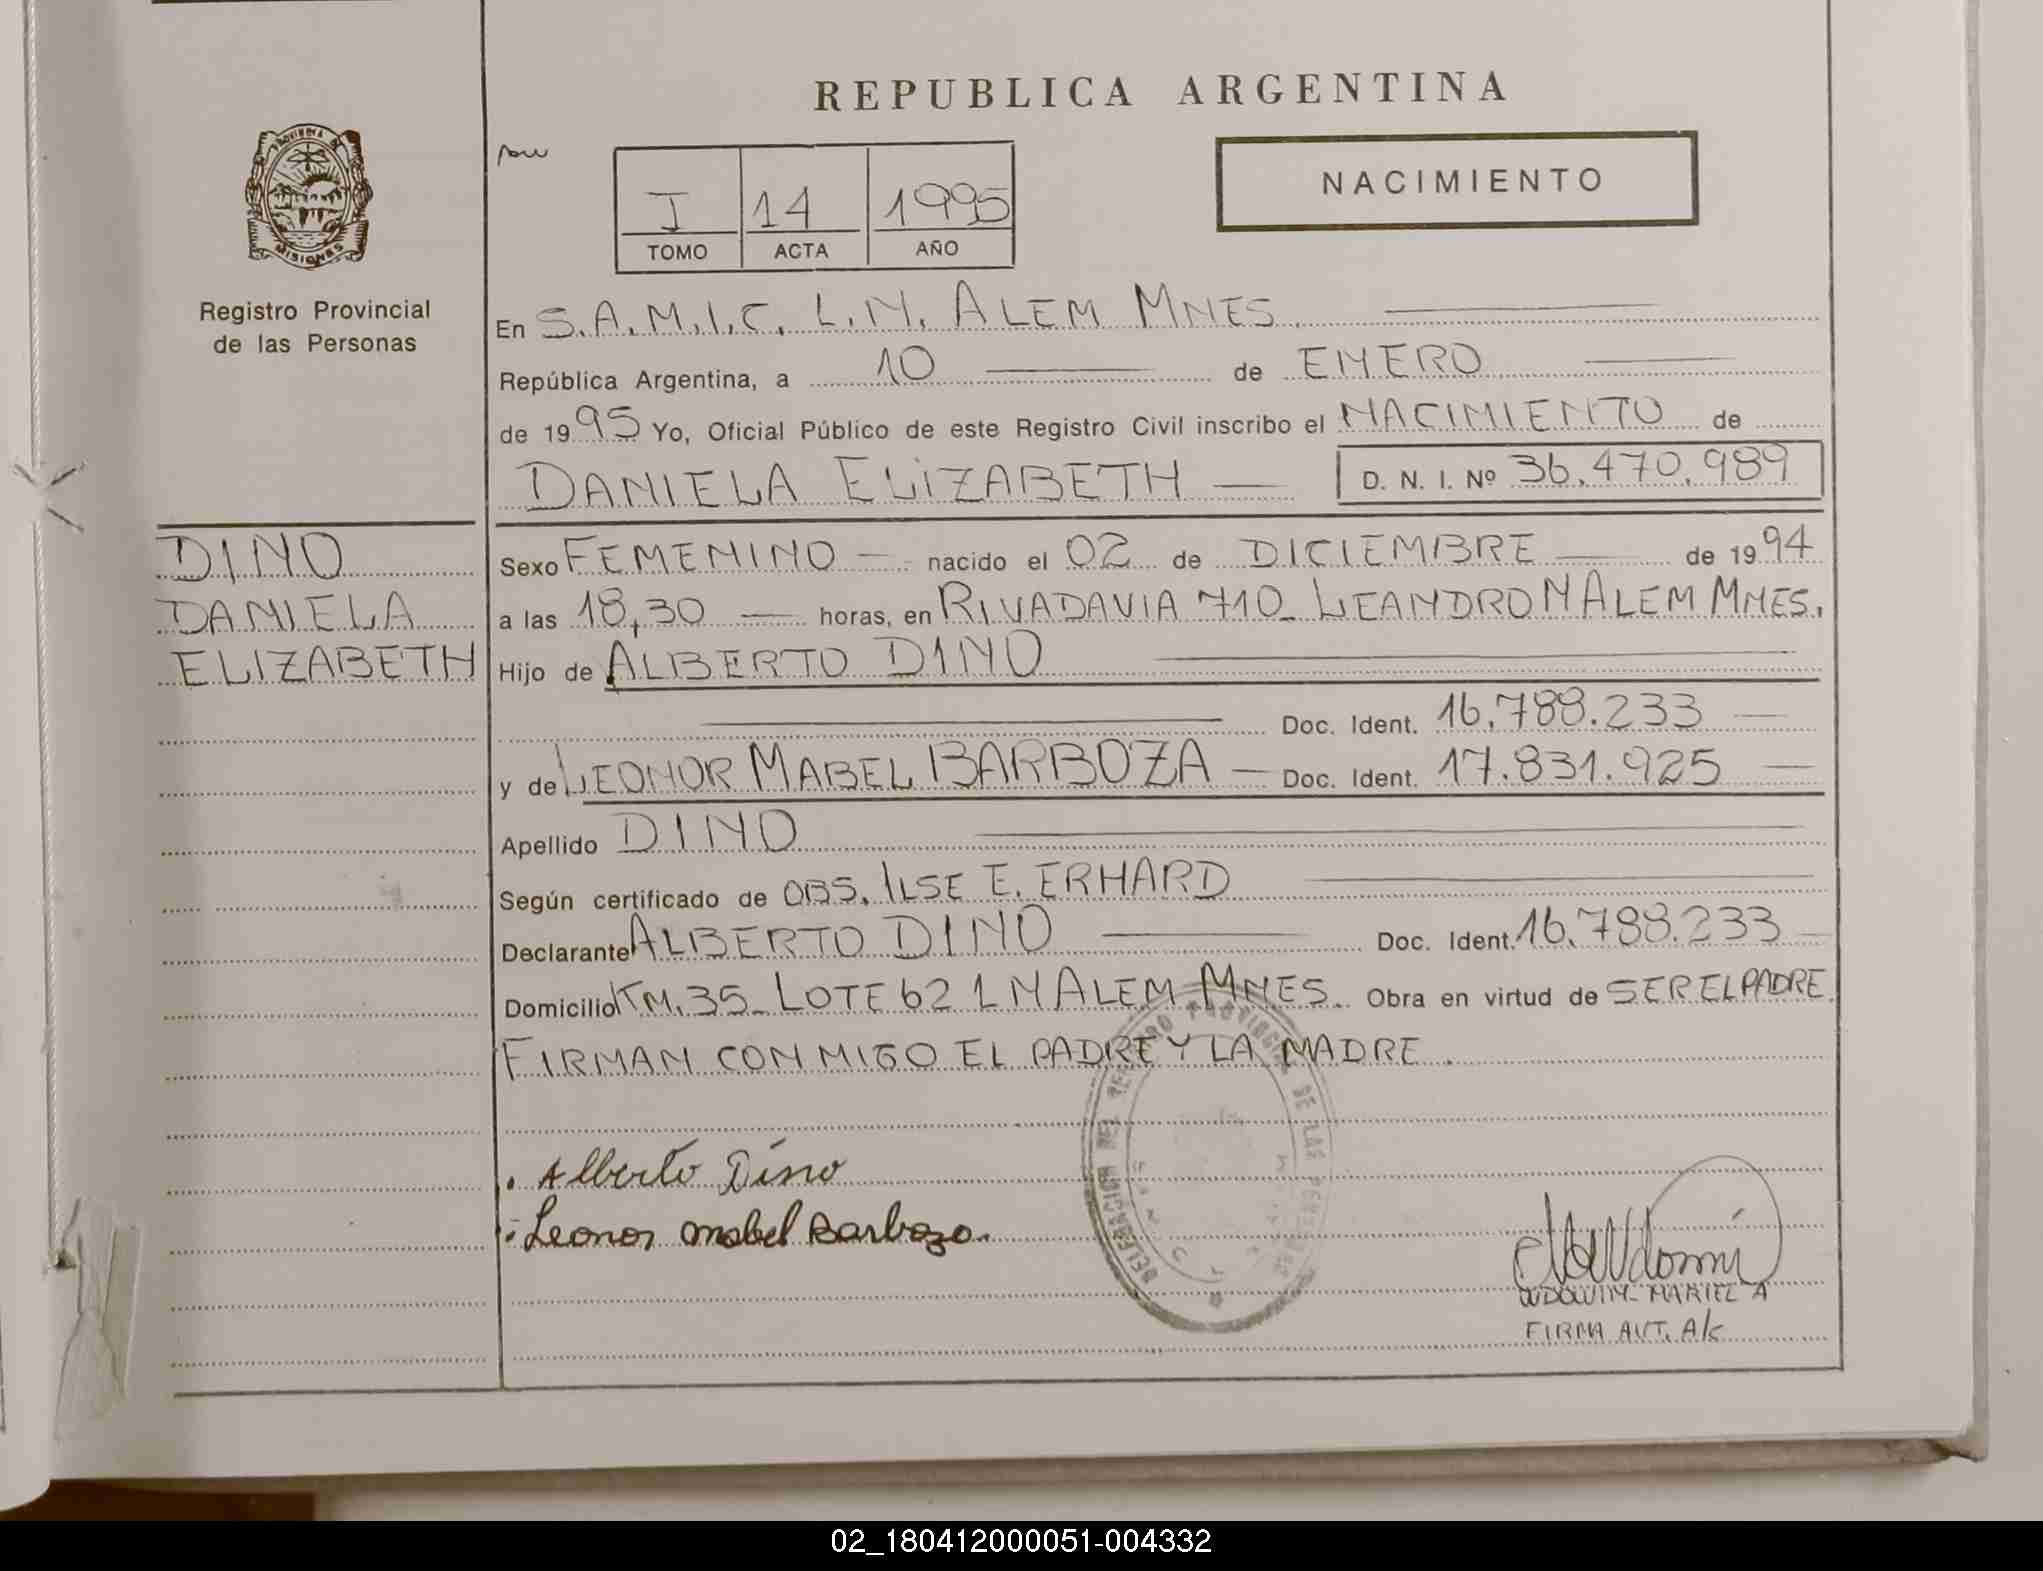 REPUBLICA ARGENTINA
PROVINCIA DE
MISIONES
Registro Provincial
de las Personas
I 14 1995
TOMO ACTA AÑO
NACIMIENTO
En S.A.M.I.C. L.N. ALEM MNES.
República Argentina, a 10 de ENERO
de 1995 Yo, Oficial Público de este Registro Civil inscribo el NACIMIENTO de
DANIELA ELIZABETH D. N. I. Nº 36.470.989
DINO
DANIELA
ELIZABETH
Sexo FEMENINO nacido el 02 de DICIEMBRE de 1994
a las 18,30 horas, en RIVADAVIA 710_ LEANDRO N ALEM MNES.
Hijo de ALBERTO DINO
Doc. Ident. 16.788.233
y de LEONOR MABEL BARBOZA Doc. Ident. 17.831.925
Apellido DINO
Según certificado de OBS. ILSE E. ERHARD
Declarante ALBERTO DINO Doc. Ident. 16.788.233
Domicilio KM. 35_ LOTE 62 L N ALEM MNES. Obra en virtud de SER EL PADRE.
FIRMAN CONMIGO EL PADRE Y LA MADRE.
Alberto Dino
Leonor Mabel Barboza.
DELEGACION DEL REGISTRO PROVINCIAL DE LAS PERSONAS
MARIEL A
FIRMA AUT. A/c
02_180412000051-004332